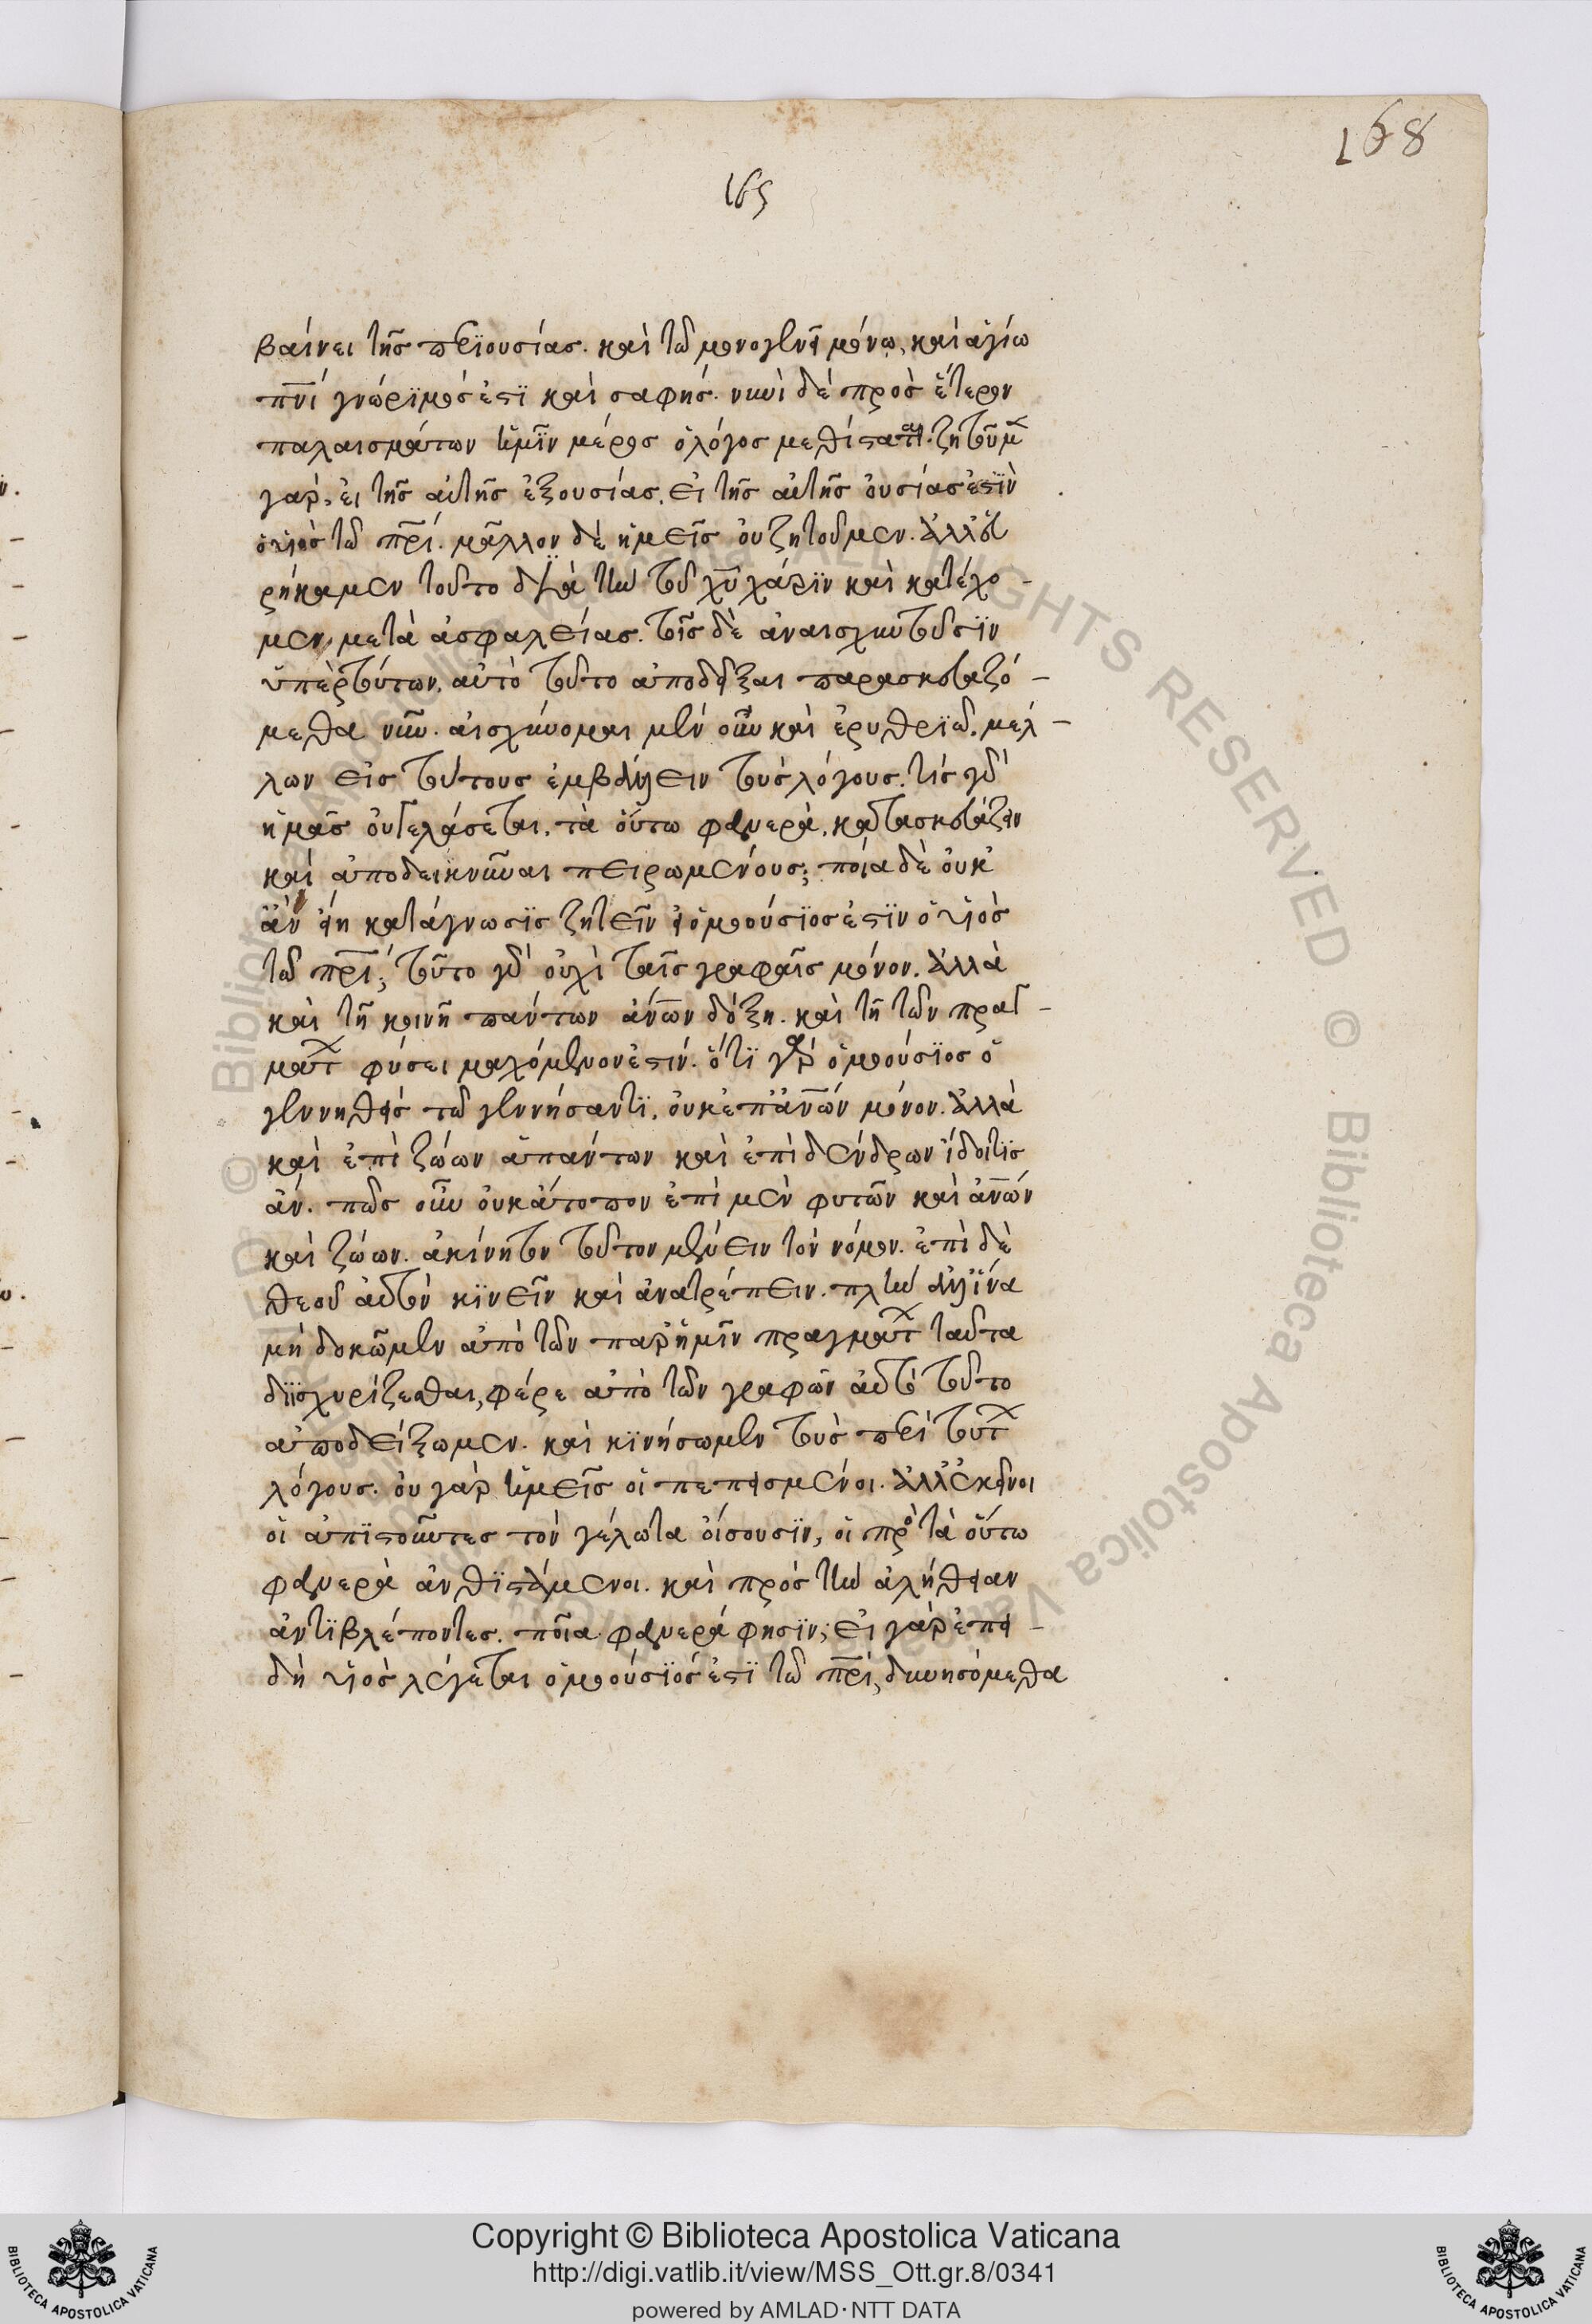 168
165
βαίνει τῆς περιουσίας. καὶ τῶ μονογενεῖ μόνω, καὶ ἁγίω
πνί γνώριμός ἐστι καὶ σαφής. νυνὶ δὲ πρὸς ἕτερον
παλαισμάτων ἡμῖν μέρος ὁ λόγος μεθίσταται. ζητοῦμ
γὰρ, εἰ τῆς αὐτῆς ἐξουσίας, εἰ τῆς αὐτῆς οὐσίας ἐστὶν
ὁ υἱὸς τῶ πρί. μᾶλλον δὲ ἡμεῖς οὐ ζητοῦμεν. ἀλλ' εὑ
ρήκαμεν τοῦτο διὰ τὴν τοῦ χυ χάριν καὶ κατέχο-
μεν μετὰ ἀσφαλείας. τοῖς δὲ ἀναισχυντοῦσιν
ὑπὲρ τούτων, αὐτὸ τοῦτο ἀποδεῖξαι παρασκευαζό-
μεθα νῦν. αἰσχύνομαι μὲν οὖν καὶ ἐρυθριῶ, μέλ-
λων εἰς τούτους ἐμβαίνειν τοὺς λόγους. τίς γὰρ
ἡμᾶς οὐ γελάσεται, τὰ οὕτω φανερὰ, κατασκευάζειν
καὶ ἀποδεικνῦναι πειρωμένους; ποία δὲ οὐκ
ἂν εἴη κατάγνωσις ζητεῖν εἰ ὁμοούσιος ἐστιν ὁ υἱὸς
τῶ πρί; τοῦτο γὰρ οὐχὶ ταῖς γραφαῖς μόνον. ἀλλὰ
καὶ τῆ κοινῆ πάντων ἀνων δόξη. καὶ τῆ τῶν πραγ-
μάτ φύσει μαχόμενον ἐστιν. ὅτι γὰρ ὁμοούσιος ὁ
γεννηθεὶς τῶ γεννήσαντι, οὐκ ἐπ' ἀνων μόνον. ἀλλὰ
καὶ ἐπὶ ζώων ἁπάντων καὶ ἐπὶ δένδρων ἴδοι τις
ἄν. πῶς οὖν οὐκ ἄτοπον ἐπὶ μὲν φυτῶν καὶ ἀνων
καὶ ζώων. ἀκίνητον τοῦτον μένειν τὸν νόμον. ἐπὶ δὲ
θεοῦ αὐτὸν κινεῖν καὶ ἀνατρέπειν. πλὴν ἀλλ' ἵνα
μὴ δοκῶμεν ἀπὸ τῶν παρ' ἡμῖν πραγμάτ ταῦτα
διϊσχυρίζεσθαι, φέρε ἀπὸ τῶν γραφῶν αὐτὸ τοῦτο
ἀποδείξωμεν. καὶ κινήσωμεν τοὺς περὶ τούτ
λόγους. οὐ γὰρ ἡμεῖς οἱ πεπεισμένοι. ἀλλ' ἐκεῖνοι
οἱ ἀπιστοῦντες τὸν γέλωτα οἴσουσιν, οἱ πρὸς τὰ οὕτω
φανερὰ ἀνθιστάμενοι. καὶ πρὸς τὴν ἀλήθειαν
ἀντιβλέποντες. ποῖα φανερά φησιν; εἰ γὰρ ἐπει-
δὴ υἱὸς λέγεται ὁμοούσιός ἐστι τῶ πρί, δυνησόμεθα
© Biblioteca Apostolica Vaticana ALL RIGHTS RESERVED © Biblioteca Apostolica Vaticana
Copyright © Biblioteca Apostolica Vaticana
http://digi.vatlib.it/view/MSS_Ott.gr.8/0341
powered by AMLAD·NTT DATA
BIBLIOTECA APOSTOLICA VATICANA
BIBLIOTECA APOSTOLICA VATICANA